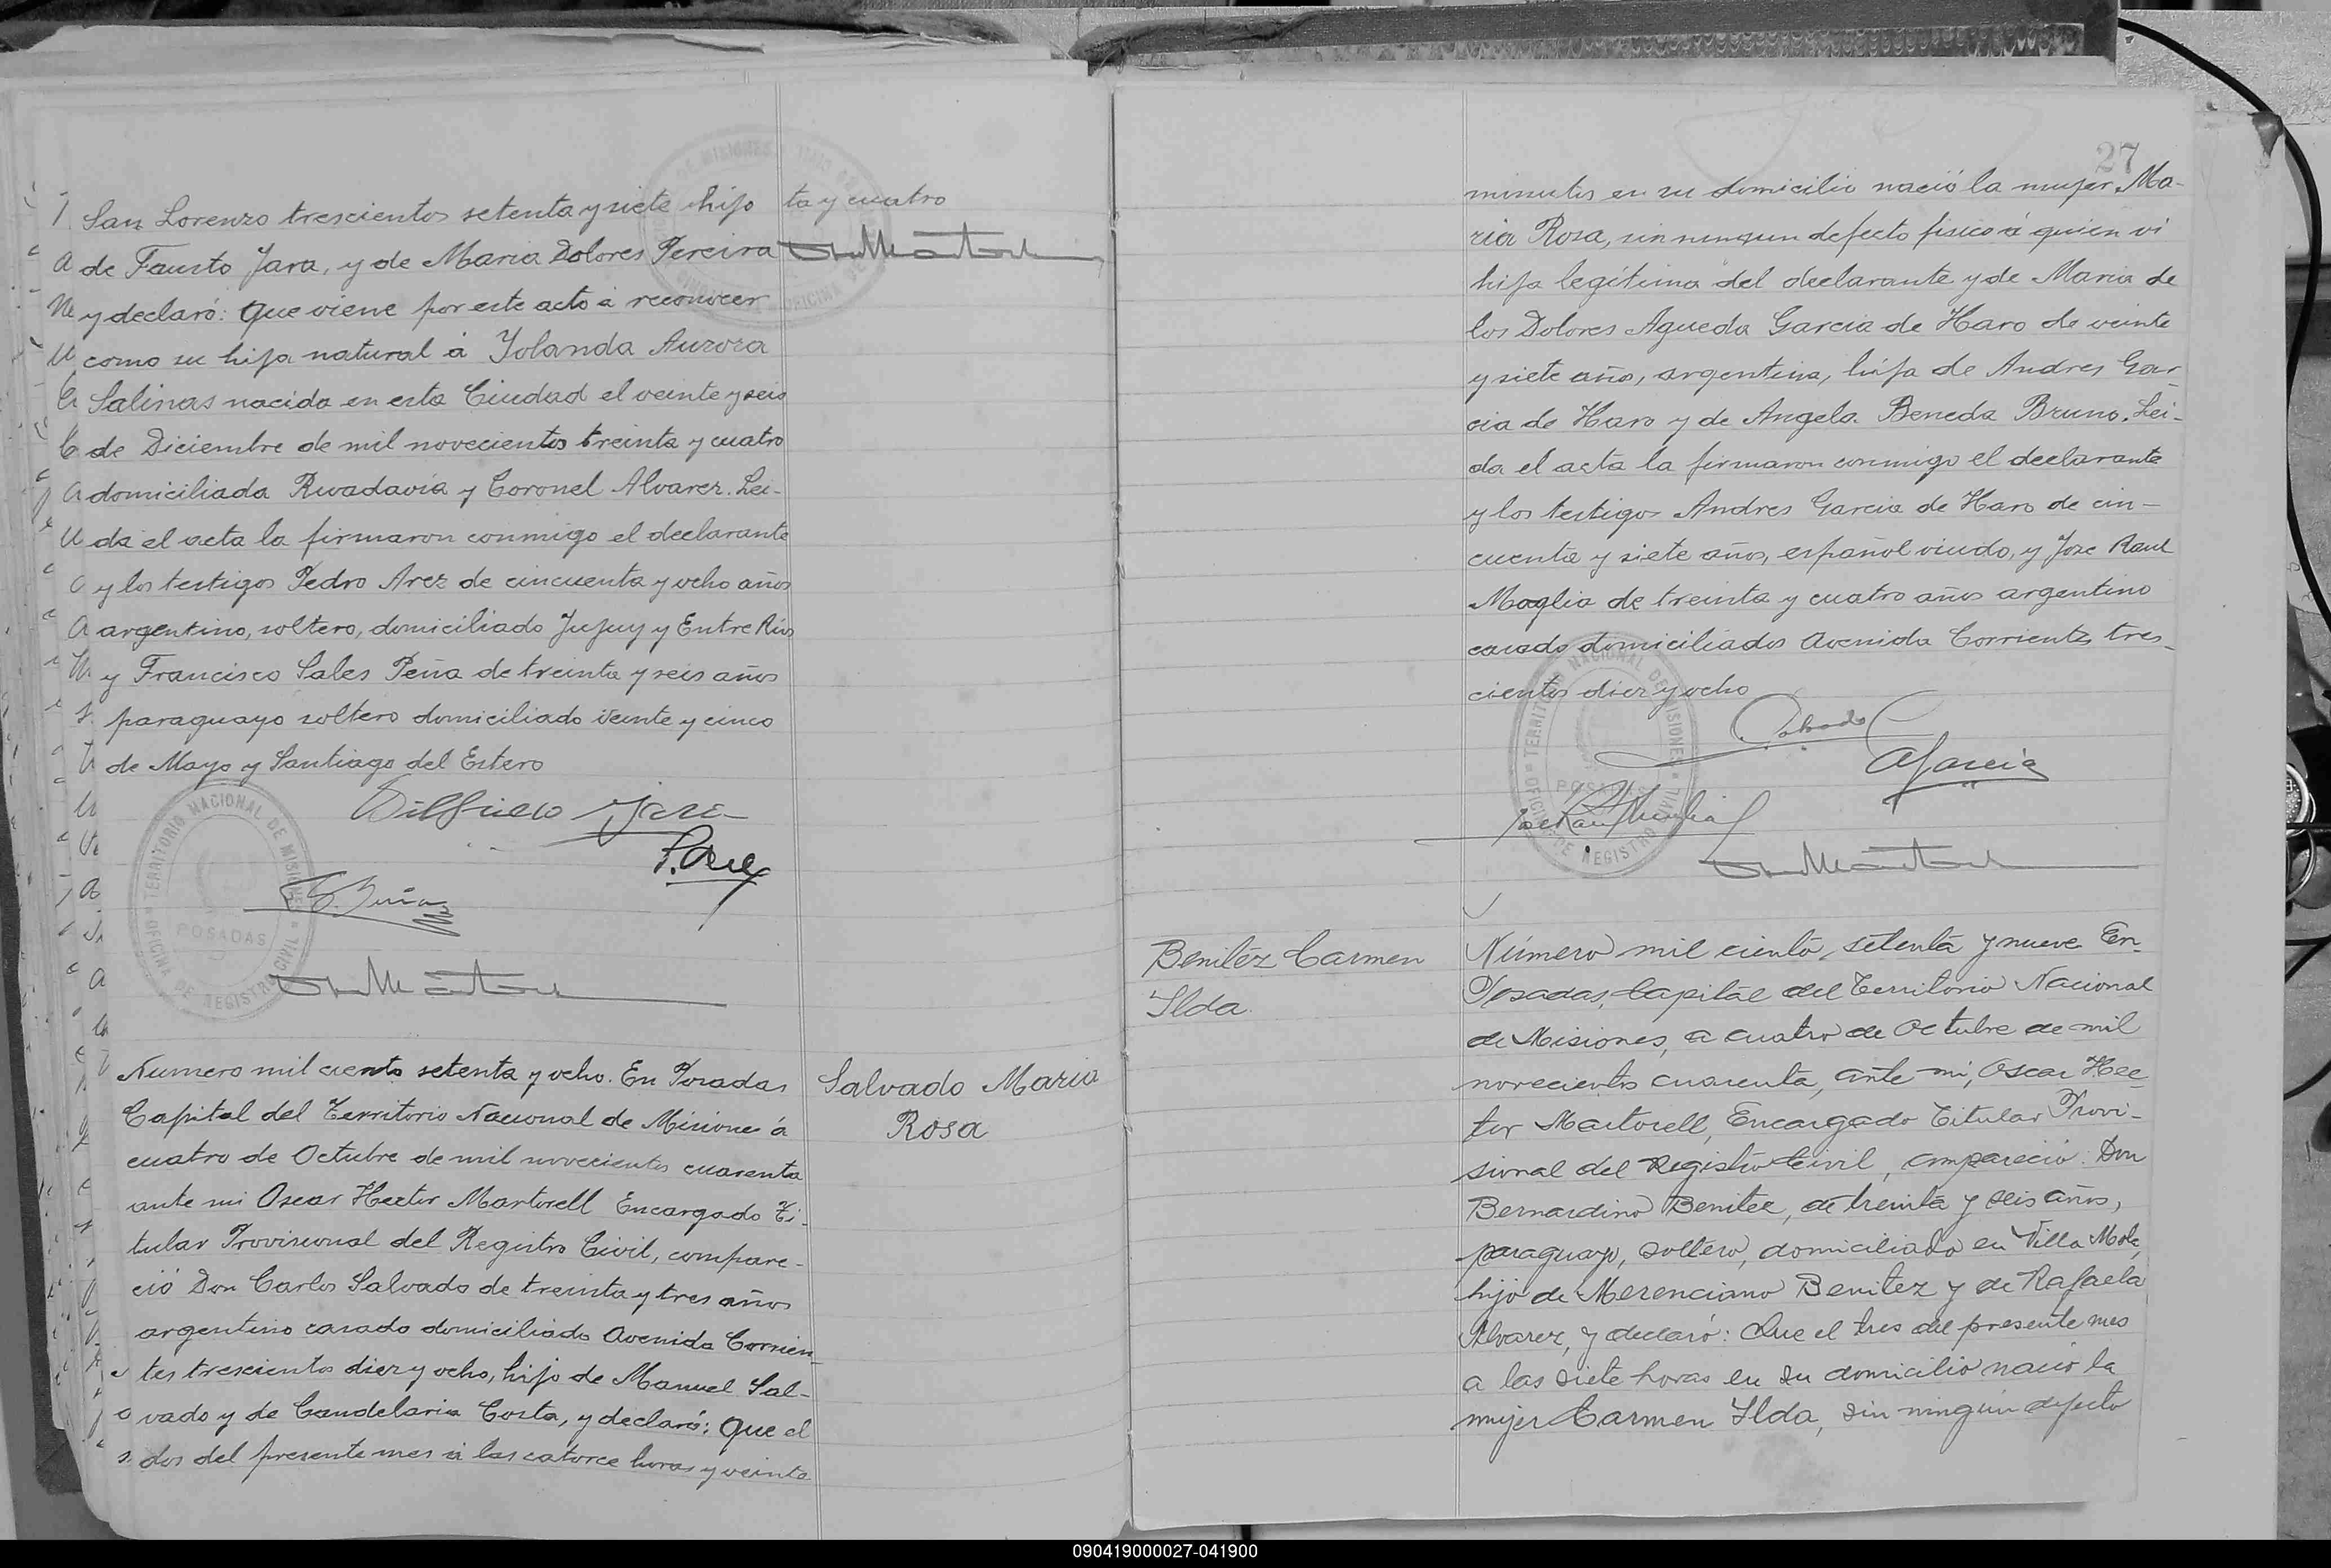 San Lorenzo trescientos setenta y siete hijo
de Fausto Jara, y de Maria Dolores Pereira
y declaró: Que viene por este acto á reconocer
como su hija natural á Yolanda Aurora
Salinas nacida en esta Ciudad el veinte y seis
de Diciembre de mil novecientos treinta y cuatro
domiciliada Rivadavia y Coronel Alvarez. Lei-
da el acta la firmaron conmigo el declarante
y los testigos Pedro Arez de cincuenta y ocho años
argentino, soltero, domiciliado Jujuy y Entre Rios
y Francisco Sales Peña de treinta y seis años
paraguayo soltero domiciliado veinte y cinco
de Mayo y Santiago del Estero
ta y cuatro
TERRITORIO NACIONAL DE MISIONES
POSADAS
OFICINA DE REGISTRO CIVIL
Numero mil ciento setenta y ocho. En Posadas
Capital del Territorio Nacional de Misiones á
cuatro de Octubre de mil novecientos cuarenta
ante mi Oscar Hector Martorell Encargado Ti-
tular Provisional del Registro Civil, compare-
ció Don Carlos Salvado de treinta y tres años
argentino casado domiciliado Avenida Corrien-
tes trescientos diez y ocho, hijo de Manuel Sal-
vado y de Candelaria Costa, y declaró: Que el
dos del presente mes á las catorce horas y veinte
Salvado Maria
Rosa
27
minutos en su domicilio nació la mujer Ma-
ria Rosa, sin ningun defecto fisico á quien vi
hija legítima del declarante y de Maria de
los Dolores Agueda Garcia de Haro de veinte
y siete años, argentina, hija de Andres Gar
cia de Haro y de Angela Beneda Bruno. Lei-
da el acta la firmaron conmigo el declarante
y los testigos Andres Garcia de Haro de cin-
cuenta y siete años, español viudo, y Jose Raul
Maglia de treinta y cuatro años argentino
casado domiciliados Avenida Corrientes tres-
cientos diez y ocho
Salvado
AGarcia
TERRITORIO NACIONAL DE MISIONES
POSADAS
OFICINA DE REGISTRO CIVIL
Benitez Carmen
Ilda.
Número mil ciento setenta y nueve En
Posadas, Capital del Territorio Nacional
de Misiones, a cuatro de Octubre de mil
novecientos cuarenta, ante mi, Oscar Hec-
tor Martorell, Encargado Titular Provi-
sional del Registro Civil, compareció: Don
Bernardino Benitez, de treinta y seis años,
paraguayo, soltero, domiciliado en Villa Mola,
hijo de Merenciano Benitez y de Rafaela
Alvarez, y declaró: Que el tres del presente mes
a las siete horas en su domicilio nació la
mujer Carmen Ilda, sin ningún defecto
090419000027-041900